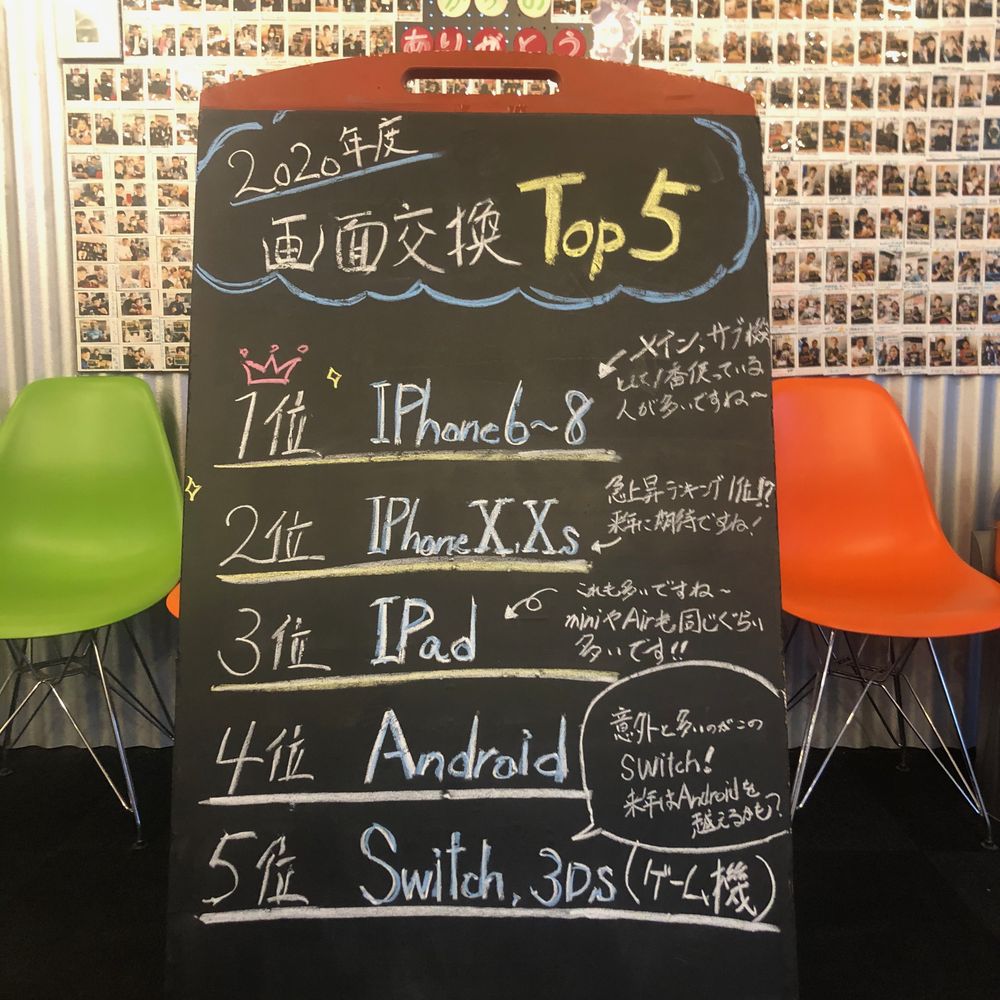 ありがとう
2020年度
画面交換 Top5
1位 IPhone6~8
メイン、サブ機
として1番使っている
人が多いですね〜
2位 IPhoneX,Xs
急上昇ランキング1位!?
来年に期待ですね!
3位 IPad
これも多いですね〜
miniやAirも同じぐらい
多いです!!
4位 Android
意外と多いのがこの
Switch!
来年はAndroidを
越えるかも?
5位 Switch, 3Ds(ゲーム機)